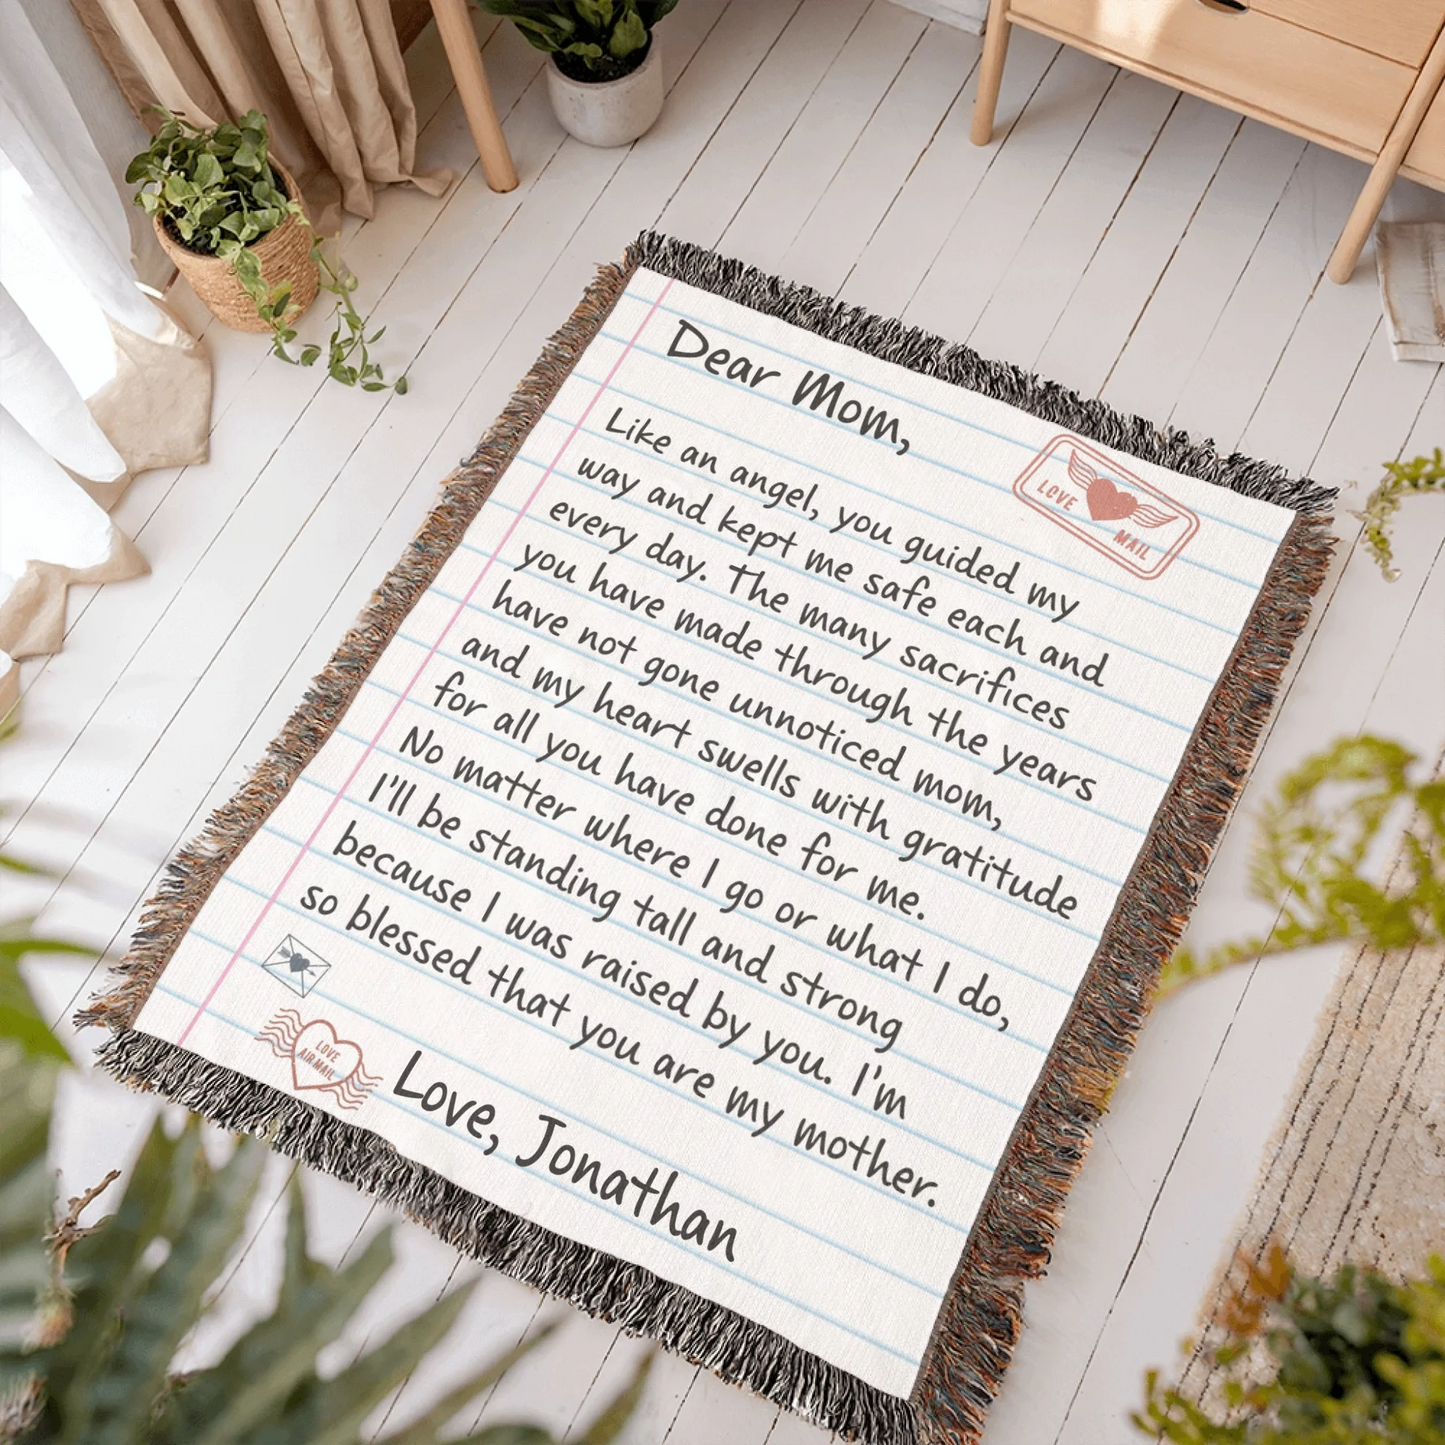 Dear Mom,
LOVE MAIL
Like an angel, you guided my
way and kept me safe each and
every day. The many sacrifices
you have made through the years
have not gone unnoticed mom,
and my heart swells with gratitude
for all you have done for me.
No matter where I go or what I do,
I'll be standing tall and strong
because I was raised by you. I'm
so blessed that you are my mother.
LOVE
AIR MAIL
Love, Jonathan